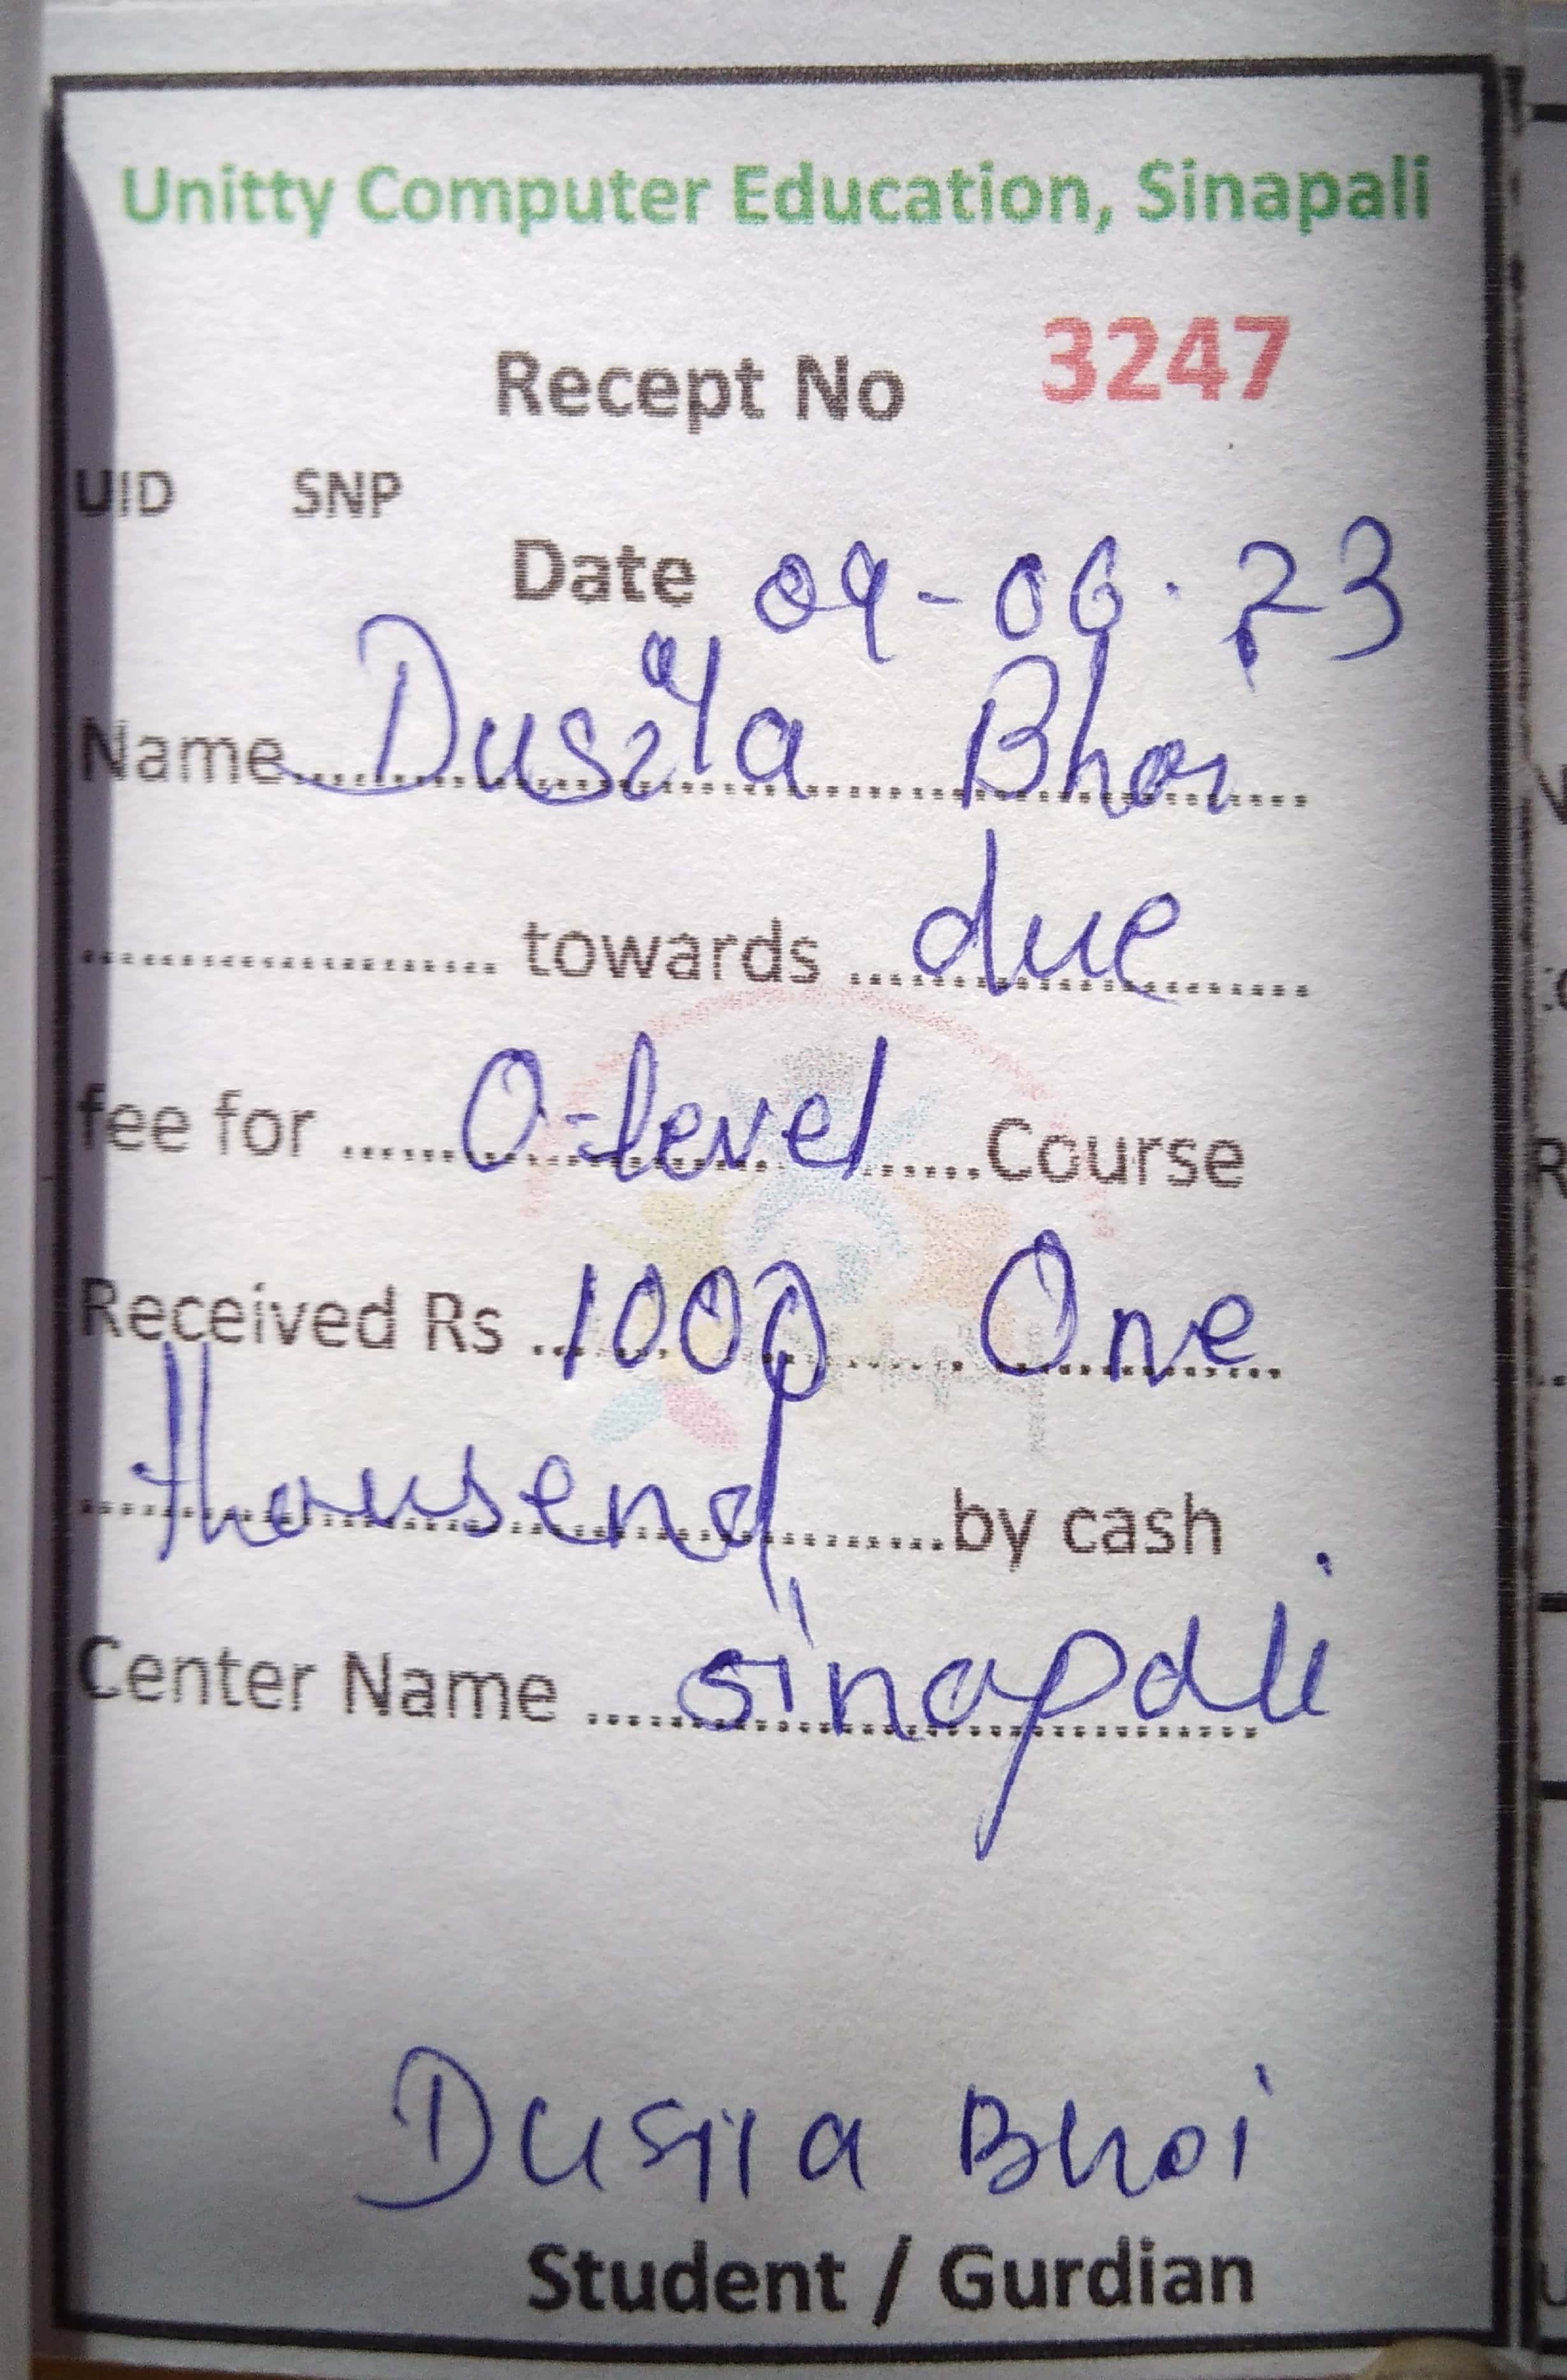 Unitty Computer Education, Sinapali
Recept No 3247
UID SNP
Date 09-06-23
Name Dusila Bhoi
towards due
fee for O-level Course
Received Rs 1000 One
thousend by cash
Center Name sinapali
Dusila Bhoi
Student / Gurdian